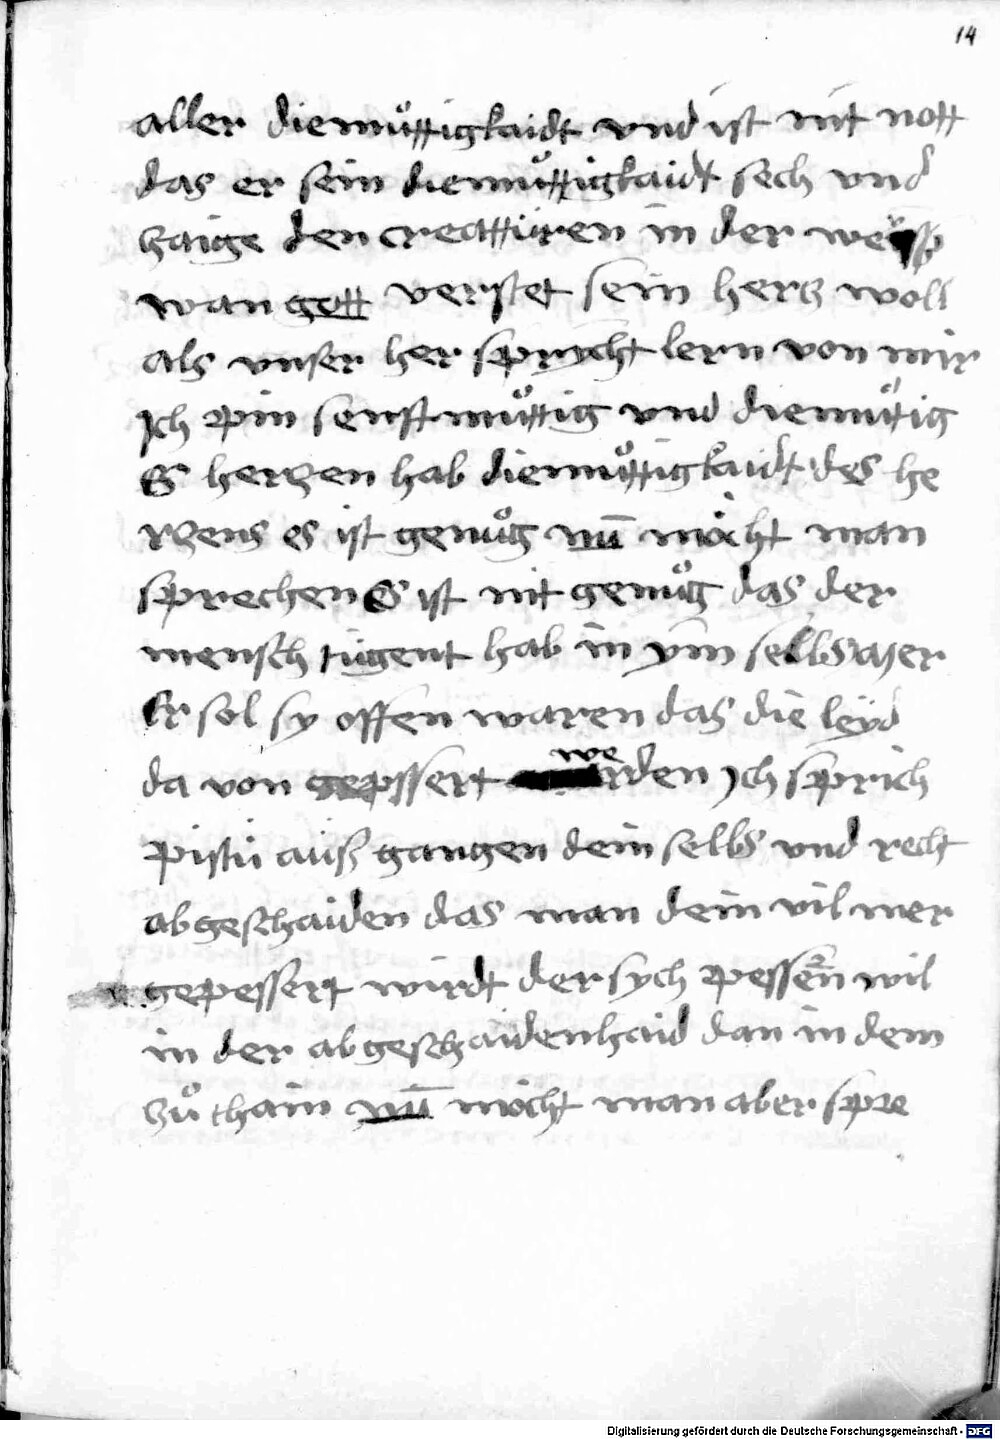 14
aller diemuͦttigkaidt vnd ist nit nott
das er sein diemuͦttigkaidt sech vnd
zaige den creatturen in der weyß
wan gott verstet sein hertz woll
als vnser her sprycht lern von mir
Jch pin senftmuͦttig vnd diemuͦtig
S hertzen hab diemuͦttigkaidt des he
rtzens es ist genuͦg nu͞ mo̊cht man
sprechen Es ist nit genuͦg das der
mensch tugent hab in ym selbs mer
Er sol sy offen waren das die leyd
da von gepssert werden Jch sprich
pistu auß gangen dein selbs vnd recht
abgeschaiden das man dein vil mer
gepessert wirdt der sych pessern wil
in der abgeschaidenhaid dan in dem
zuͦthain nu͞ mocht man aber spre
Digitalisierung gefördert durch die Deutsche Forschungsgemeinschaft - DFG